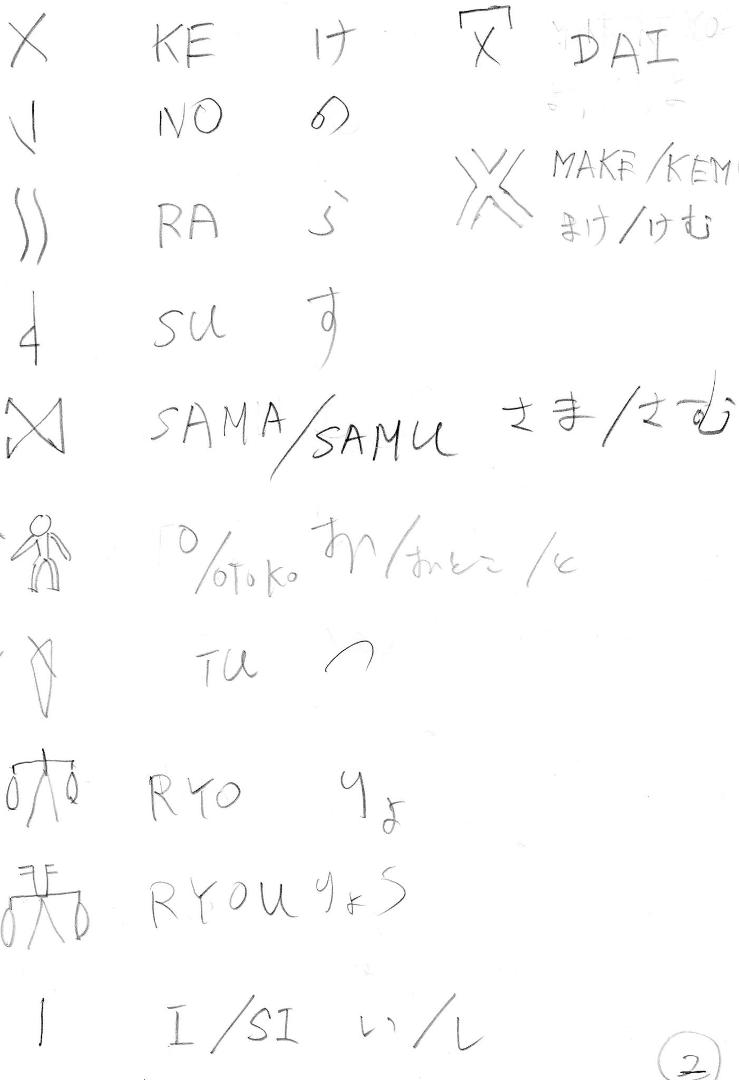 KE け DAI
NO の
MAKE/KEM
まけ/けむ
RA ら
SU す
SAMA/SAMU さま/さむ
O/OTOKO お/おとこ/と
TU つ
RYO りょ
RYOU りょう
I/SI い/し
2